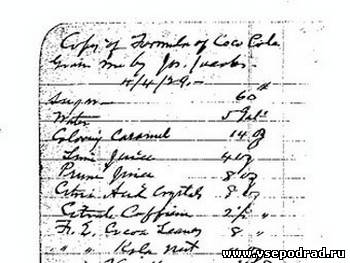 Copy of Formula of Coco Cola
Given me by Jos. Jacobs.
4/4/29.—
Sugar 60 #
Water 5 Gals
Coloring Caramel 14 oz
Lime Juice 4 oz
Prune Juice 8 oz
Citric Acid Crystals 8 oz
Citrate Caffein 2½ "
F. E. Cocoa Leaves 8 "
" " Kola Nut
www.vsepodrad.ru